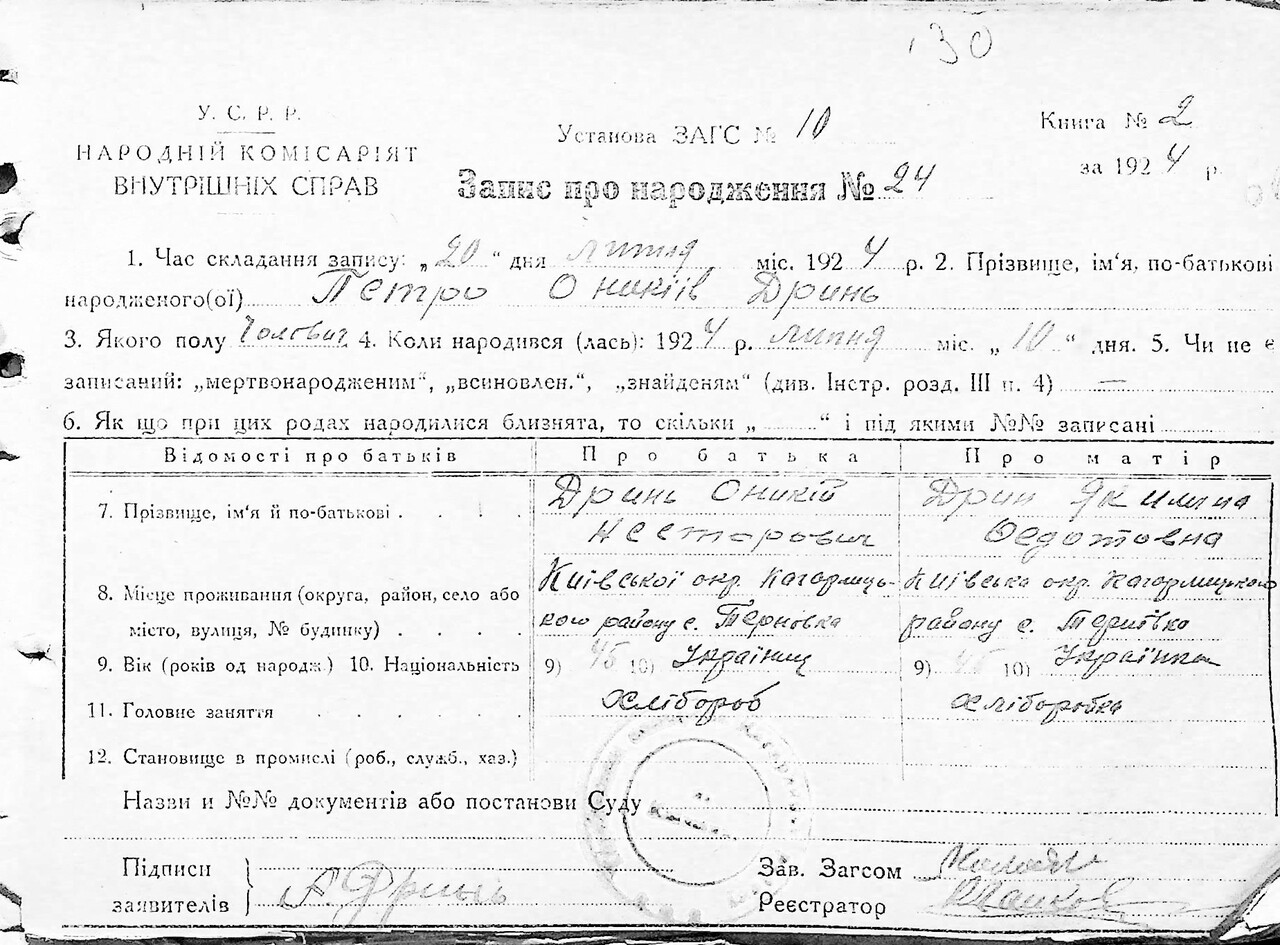 30
У. С. Р. Р.
НАРОДНІЙ КОМІСАРІЯТ
ВНУТРІШНІХ СПРАВ
Установа ЗАГС № 10
Книга № 2
за 1924 р.
Запис про народження № 24
1. Час складання запису: „20“ дня липня міс. 1924 р. 2. Прізвище, ім‘я, по-батькові
народженого(ої) Петро Оникіїв Дринь
3. Якого полу чоловіч 4. Коли народився (лась): 1924 р. липня міс. „10“ дня. 5. Чи не є
записаний: „мертвонародженим“, „всиновлен.“, „знайденям“ (див. Інстр. розд. III п. 4) —
6. Як що при цих родах народилися близнята, то скільки „ “ і під якими №№ записані
Відомості про батьків Про батька Про матір
7. Прізвище, ім‘я й по-батькові . . . . Дринь Оникій Дрин Якилина
Несторович Федотовна
8. Місце проживання (округа, район, село або Київської окр. Кагорлиць- Київська окр. Кагорлицького
місто, вулиця, № будинку) . . . . кого району с. Терновка району с.
9. Вік (років од народж.) 10. Національність 9) 45 10) Українец 9) 45 10) Українка
11. Головне заняття . . . . . . Хлібороб хліборобка
12. Становище в промислі (роб., служб., хаз.)
Назви и №№ документів або постанови Суду
Підписи
заявителів А. Дринь
Зав. Загсом
Реєстратор